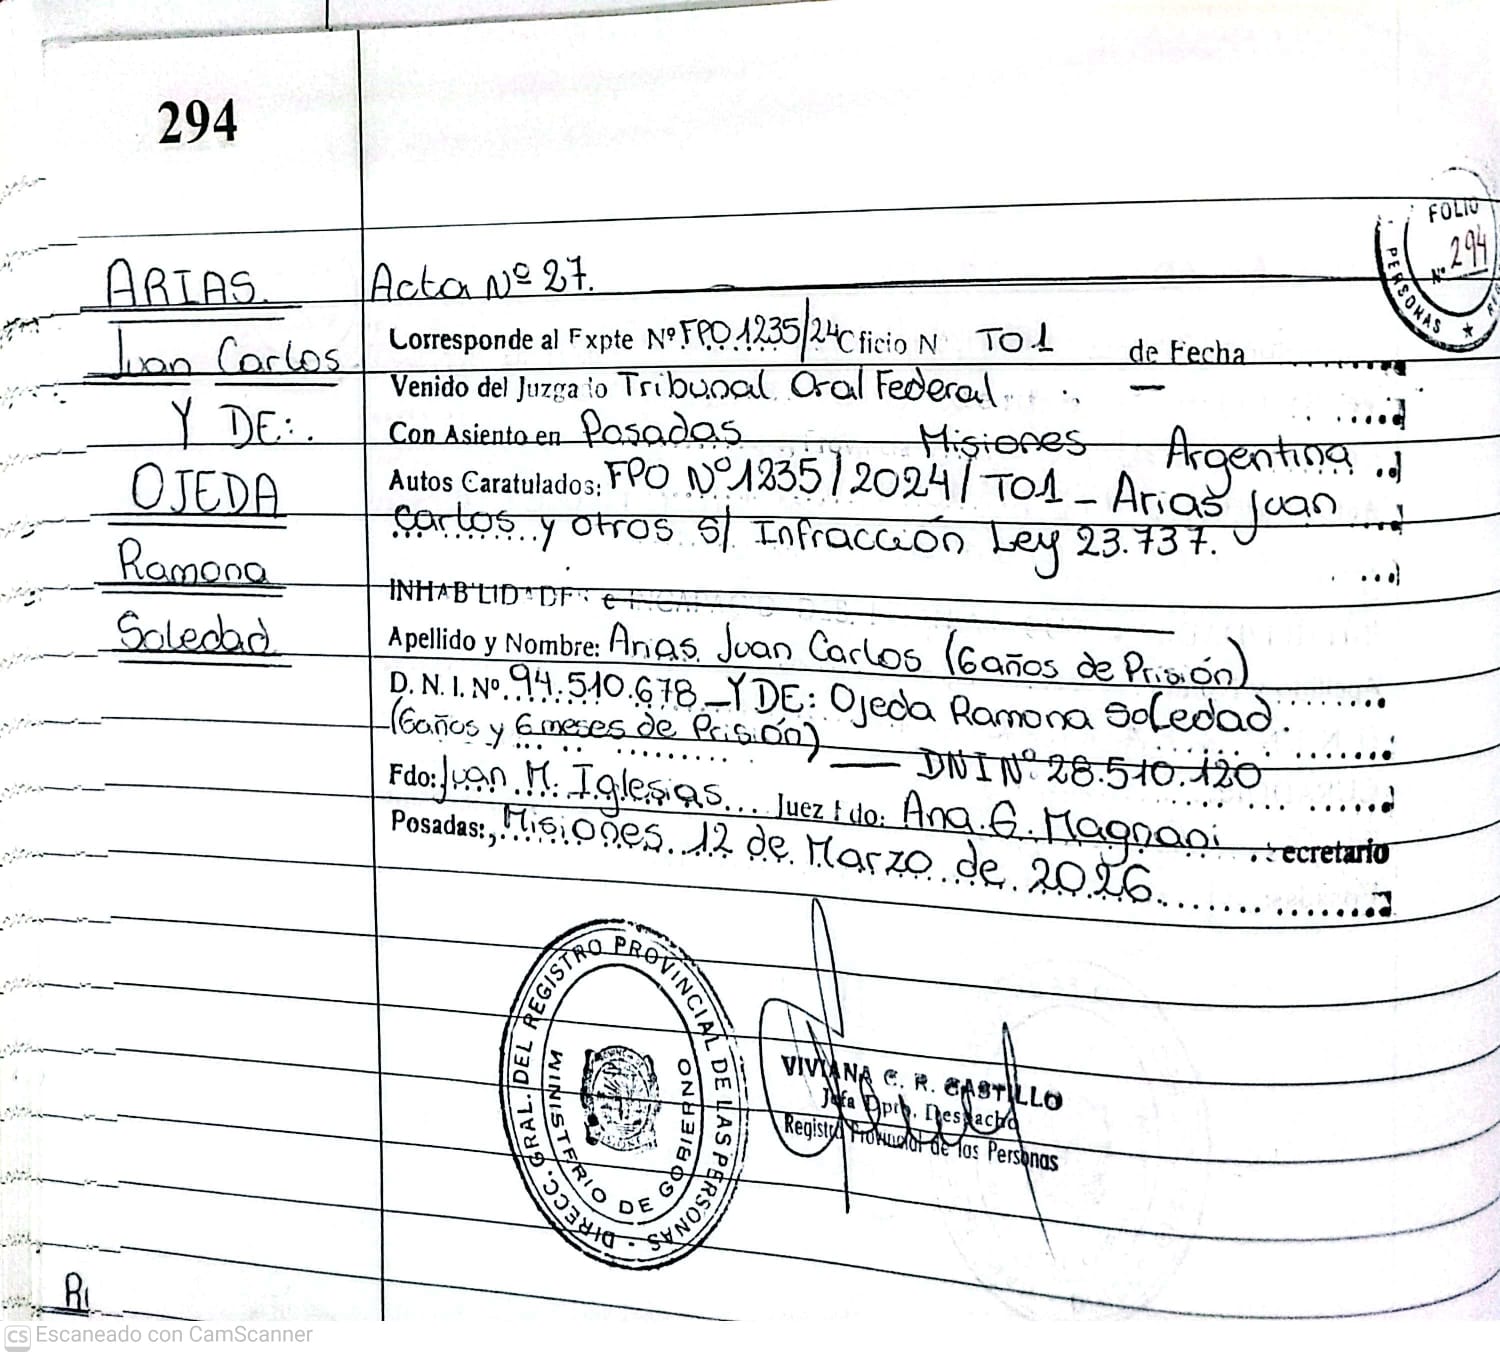 294
FOLIO
Nº 294
PERSONAS
ARIAS.
Juan Carlos
Y DE:.
OJEDA
Ramona
Soledad
Acta Nº 27.
Corresponde al Expte Nº FPO 1235/24 Oficio N TO1 de Fecha
Venido del Juzgado Tribunal Oral Federal. —
Con Asiento en Posadas Misiones Argentina
Autos Caratulados: FPO Nº 1235/2024/TO1 - Arias Juan
Carlos y otros s/ Infracción Ley 23.737.
INHABILIDADES e
Apellido y Nombre: Arias Juan Carlos (6 años de Prisión)
D. N. I. Nº 94.510.678 - Y DE: Ojeda Ramona Soledad.
(6 años y 6 meses de Prisión) — DNI Nº 28.510.120
Fdo: Juan M. Iglesias Juez Fdo: Ana. G. Magnani secretario
Posadas:, Misiones 12 de Marzo de 2026
DIRECC. GRAL. DEL REGISTRO PROVINCIAL DE LAS PERSONAS -
MINISTERIO DE GOBIERNO
VIVIANA C. R. CASTILLO
Jefa Dpto. Despacho
Registro Provincial de las Personas
CS Escaneado con CamScanner